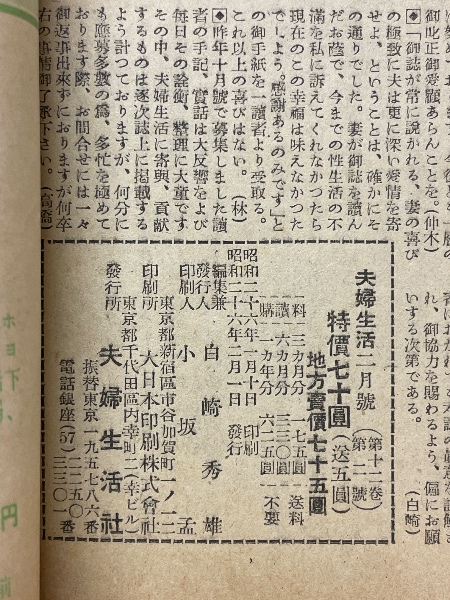 御叱正御愛顧あらんことを。(仙木)
◆「御誌が常に説かれる、妻の喜び
の極致に夫は更に深い愛情を寄
せよ、ということは、確かにそ
の通りでした。妻が御誌を讀ん
だお蔭で、今までの性生活の不
滿を私に訴えてくれなかつたら
現在のこの幸福は味えなかつた
でしよう。感謝あるのみです」と
の御手紙を一讀者より受取る。
これ以上の喜びはない。(林)
◆昨年十月號で募集しました讀
者の手記、實話は大反響をよび
毎日その詮衡、整理に大童です
その中、夫婦生活に寄與、貢獻
するものは逐次誌上に掲載する
よう計つておりますが、何分に
も應募多數の爲、多忙を極めて
おります際、お問合せには一々
御返事出來ずにおりますが何卒
右の事情御了承下さい。(高橋)
れ、御協力を賜わるよう、偏にお願
いする次第である。
(白崎)
夫婦生活二月號
(第十二卷
第二號)
特價七十圓(送五圓)
地方賣價七十五圓
購讀料
三カ月分 七五圓 送料
六カ月分 三三〇圓
一カ年分 六二五圓 不要
昭和二十六年一月十日 印刷
昭和二十六年二月一日 發行
編集兼
發行人 白崎秀雄
印刷人 小坂孟
東京都新宿區市谷加賀町一ノ一二
印刷所 大日本印刷株式會社
東京都千代田區内幸町(幸ビル)
發行所 夫婦生活社
振替東京一九五七八六番
電話銀座(57)二二五〇番
三三〇一番
円